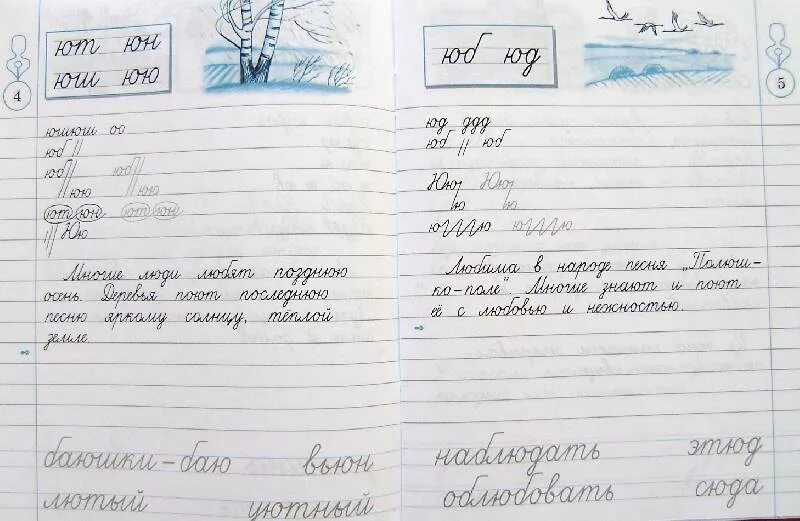 ют юн
юш юю
4
юшюш оо
юб //
юб // юб //
// юю // юю
ют юн ют юн
/// Юю
Многие люди любят позднюю
осень. Деревья поют последнюю
песню яркому солнцу, тёплой
земле.
баюшки-баю вьюн
лютый уютный
юб юд
5
юд ддд
юб // юб
Любима в народе песня „Полюш-
ко-поле“. Многие знают и поют
её с любовью и нежностью.
наблюдать этюд
облюбовать сюда